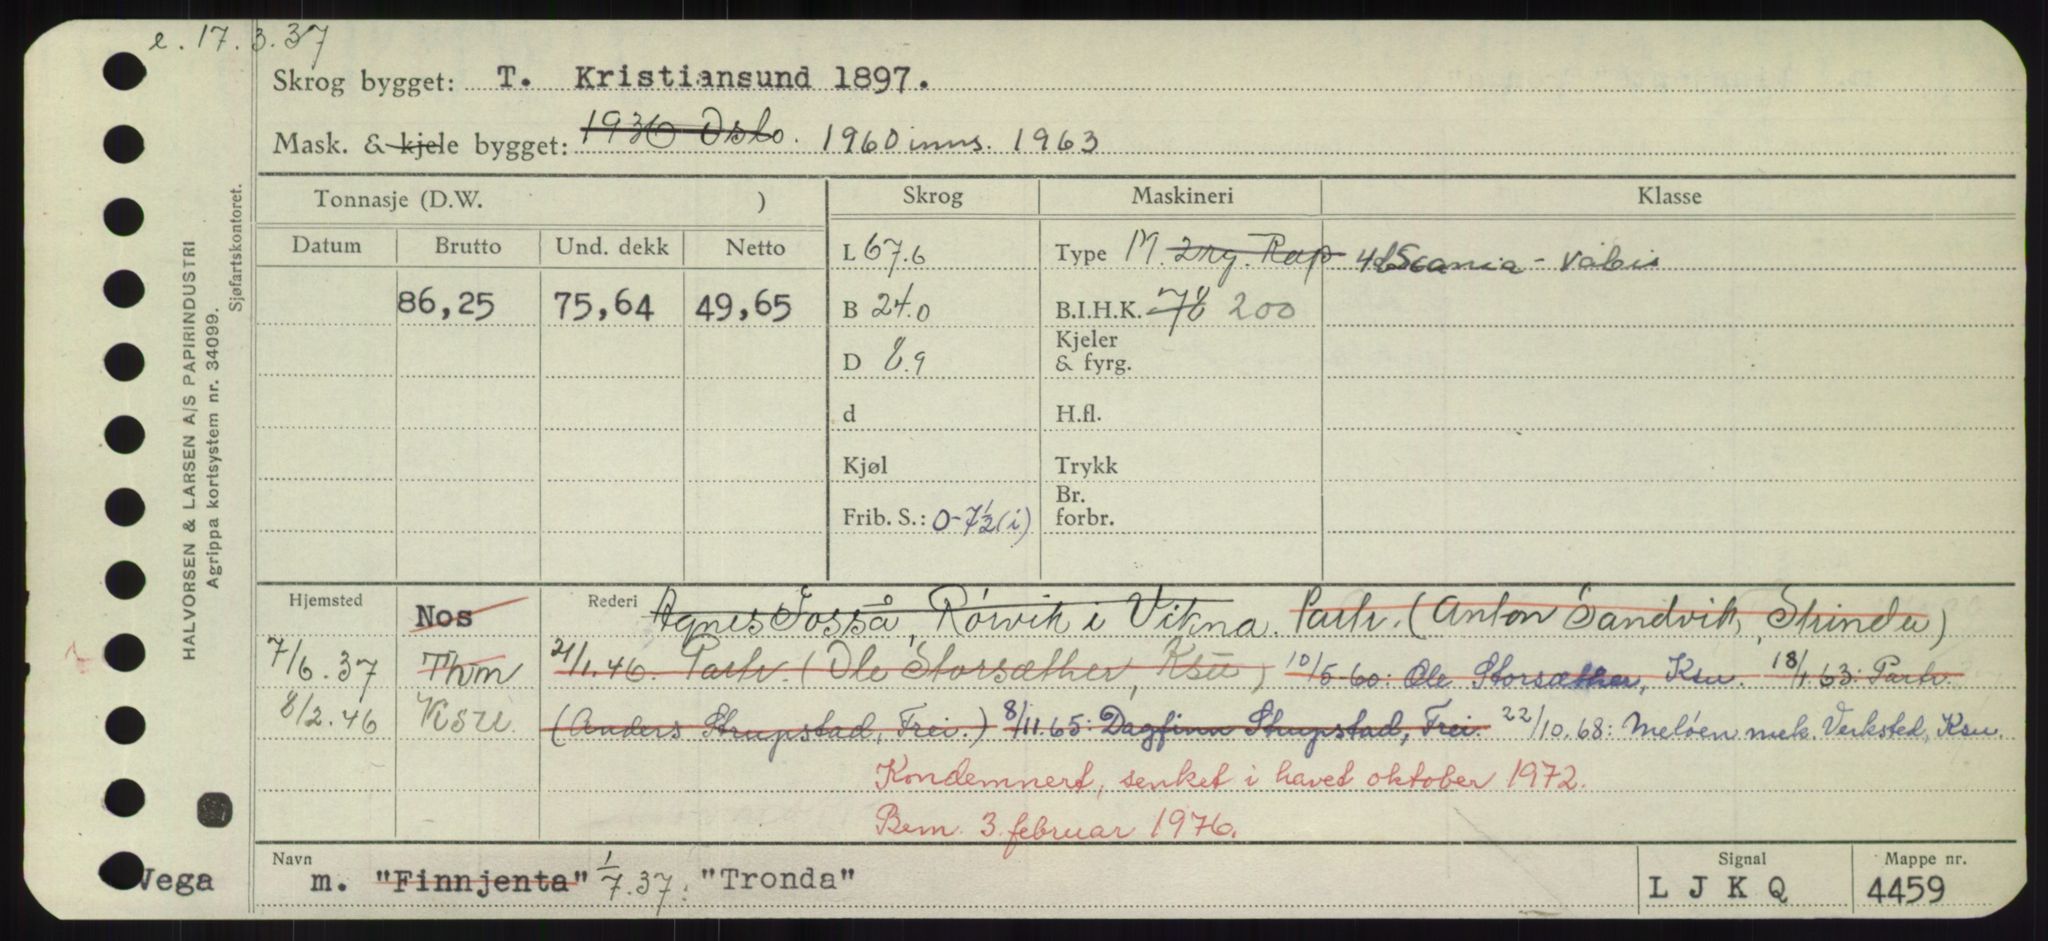 e. 17.3.37
Skrog bygget: T. Kristiansund 1897.
Mask. & kjele bygget: 1936 Oslo. 1960 inns. 1963
Tonnasje (D.W. )
Skrog
Maskineri
Klasse
Datum
Brutto
Und. dekk
Netto
86,25
75,64
49,65
L 67.6
B 24.0
D 8.9
d
Kjøl
Frib. S.: 0-7½(i)
Type M. 2 Rap Scania-Vabis
B.I.H.K. 78 200
Kjeler
& fyrg.
H.fl.
Trykk
Br.
forbr.
Hjemsted
Nos
7/6.37 Thm
8/2.46 Ksu
Rederi Agnes Fosså, Rørvik i Vikna. Partr. (Anton Sandvik, Strinda)
21/1.46. Partr. (Ole Storsæther, Ksu) 10/5-60: Ole Storsæther, Ksu. 18/1.63: Partr.
(Anders Strupstad, Frei.) 8/11.65: Dagfinn Strupstad, Frei. 22/10.68: Meløen mek. Verksted, Ksu.
Kondemnert, senket i havet oktober 1972.
Bem. 3. februar 1976.
Navn
m. "Finnjenta" 1/7.37. "Tronda"
Signal
L J K Q
Mappe nr.
4459
Vega
HALVORSEN & LARSEN A/S PAPIRINDUSTRI
Agrippa kortsystem nr. 34099.
Sjøfartskontoret.